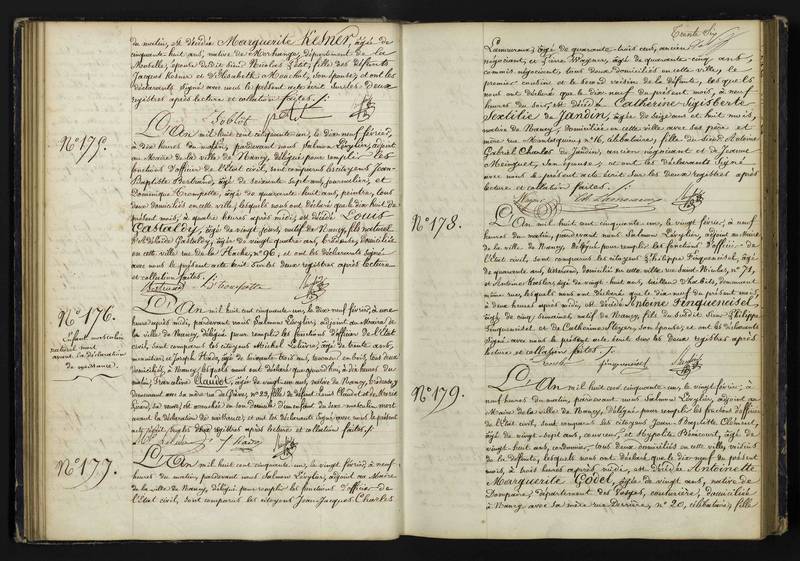 du matin, est décédée Marguerite Kesner, âgée de
cinquante-huit ans, native de Morhange, département de la
Moselle, épouse du dit sieur Nicolas Petit, fille des défunts
Jacques Kesner et Elisabeth son épouse; et ont les
déclarants signé avec nous le présent acte écrit sur les deux
registres après lecture et collation faites ./.
Petit
N° 175.
L'An mil huit cent cinquante-un, le dix-neuf février,
à dix heures du matin, pardevant nous Salmon Lévylier, adjoint
au Maire de la ville de Nancy, délégué pour remplir les
fonctions d'officier de l'État civil, sont comparus les citoyens Jean-
Baptiste Bertrand, âgé de soixante-sept ans, journalier, et
Dominique Trompette, âgé de quarante-huit ans, peintre, tous
deux domiciliés en cette ville, lesquels nous ont déclaré que le dix-huit du
présent mois, à quatre heures après midi, est décédé Louis
Castaldy, âgé de vingt jours, natif de Nancy, fils naturel
d'Adélaïde Gastaldy, âgée de vingt-quatre ans, domiciliée
en cette ville rue de la n° 96, et ont les déclarants signé
avec nous le présent acte écrit sur les deux registres après lecture
et collation faites ./.
Bertrand D Trompette
N° 176.
Enfant masculin
naturel mort
avant la déclaration
de naissance.
L'An mil huit cent cinquante-un, le dix-neuf février, à une
heure après midi, pardevant nous Salmon Lévylier, adjoint au Maire de
la ville de Nancy, délégué pour remplir les fonctions d'officier de l'État
civil, sont comparus les citoyens Michel Lelièvre, âgé de trente ans,
et Joseph Hardy, âgé de cinquante-trois ans, tous deux
domiciliés à Nancy; lesquels nous ont déclaré qu'aujourd'hui, à dix heures du
matin, Françoise Claudot, âgée de vingt-un ans, native de Nancy,
demeurant avec sa mère rue n° 29, fille de défunt Louis Claudot et de Marie
sa veuve; est accouchée en son domicile d'un enfant du sexe masculin mort
avant la déclaration de naissance; et ont les déclarants signé avec nous le présent
acte écrit sur les deux registres après lecture et collation faites ./.
N° 177.
L'An mil huit cent cinquante-un, le vingt février, à neuf
heures du matin, pardevant nous Salmon Lévylier, adjoint au Maire
de la ville de Nancy, délégué pour remplir les fonctions d'officier de
l'État civil, sont comparus les citoyens Jean-Jacques Charles
Trente Six
Lamoureux, âgé de quarante-trois ans, ancien
négociant, et Wagner, âgé de quarante-cinq ans,
commis négociant, tous deux domiciliés en cette ville, le
premier cousin et le second voisin de la défunte, lesquels
nous ont déclaré que le dix-neuf du présent mois, à neuf
heures du soir, est décédée Catherine-Sigisberte
Sextilie de Jandin, âgée de seize ans et huit mois,
native de Nancy, domiciliée en cette ville avec ses père et
mère rue Montesquieu n° 16, célibataire, fille du sieur Antoine
Gabriel Charles de Jandin, ancien négociant et de Jeanne
son épouse; et ont les déclarants signé
avec nous le présent acte écrit sur les deux registres après
lecture et collation faites ./.
Lamoureux
N° 178.
L'An mil huit cent cinquante-un, le vingt février, à neuf
heures du matin, pardevant nous Salmon Lévylier, adjoint au Maire
de la ville de Nancy, délégué pour remplir les fonctions d'officier de
l'État civil, sont comparus les citoyens Philippe Finqueneisel, âgé
de quarante ans, domicilié en cette ville rue Saint-Nicolas, n° 71,
et Antoine âgé de vingt-huit ans, tailleur d'habits, demeurant
même rue; lesquels nous ont déclaré que le dix-neuf du présent mois,
à deux heures après midi, est décédé Antoine Finqueneisel,
âgé de cinq semaines, natif de Nancy, fils du susdit sieur Philippe
Finqueneisel et de Catherine son épouse; et ont les déclarants
signé avec nous le présent acte écrit sur les deux registres après
lecture et collation faites ./.
finqueneisel
N° 179.
L'An mil huit cent cinquante-un, le vingt février, à
neuf heures du matin, pardevant nous Salmon Lévylier, adjoint au
Maire de la ville de Nancy, délégué pour remplir les fonctions d'officier
de l'État civil, sont comparus les citoyens Jean-Baptiste Clément,
âgé de vingt-sept ans, couvreur, et Hypolite âgé de
vingt-huit ans, cordonnier, tous deux domiciliés en cette ville, voisins
de la défunte, lesquels nous ont déclaré que le dix-neuf du présent
mois, à trois heures après midi, est décédée Antoinette
Marguerite Godel, âgée de vingt ans, native de
Dompaire, département des Vosges, couturière, domiciliée
à Nancy avec sa mère rue Derrière, n° 20, célibataire, fille